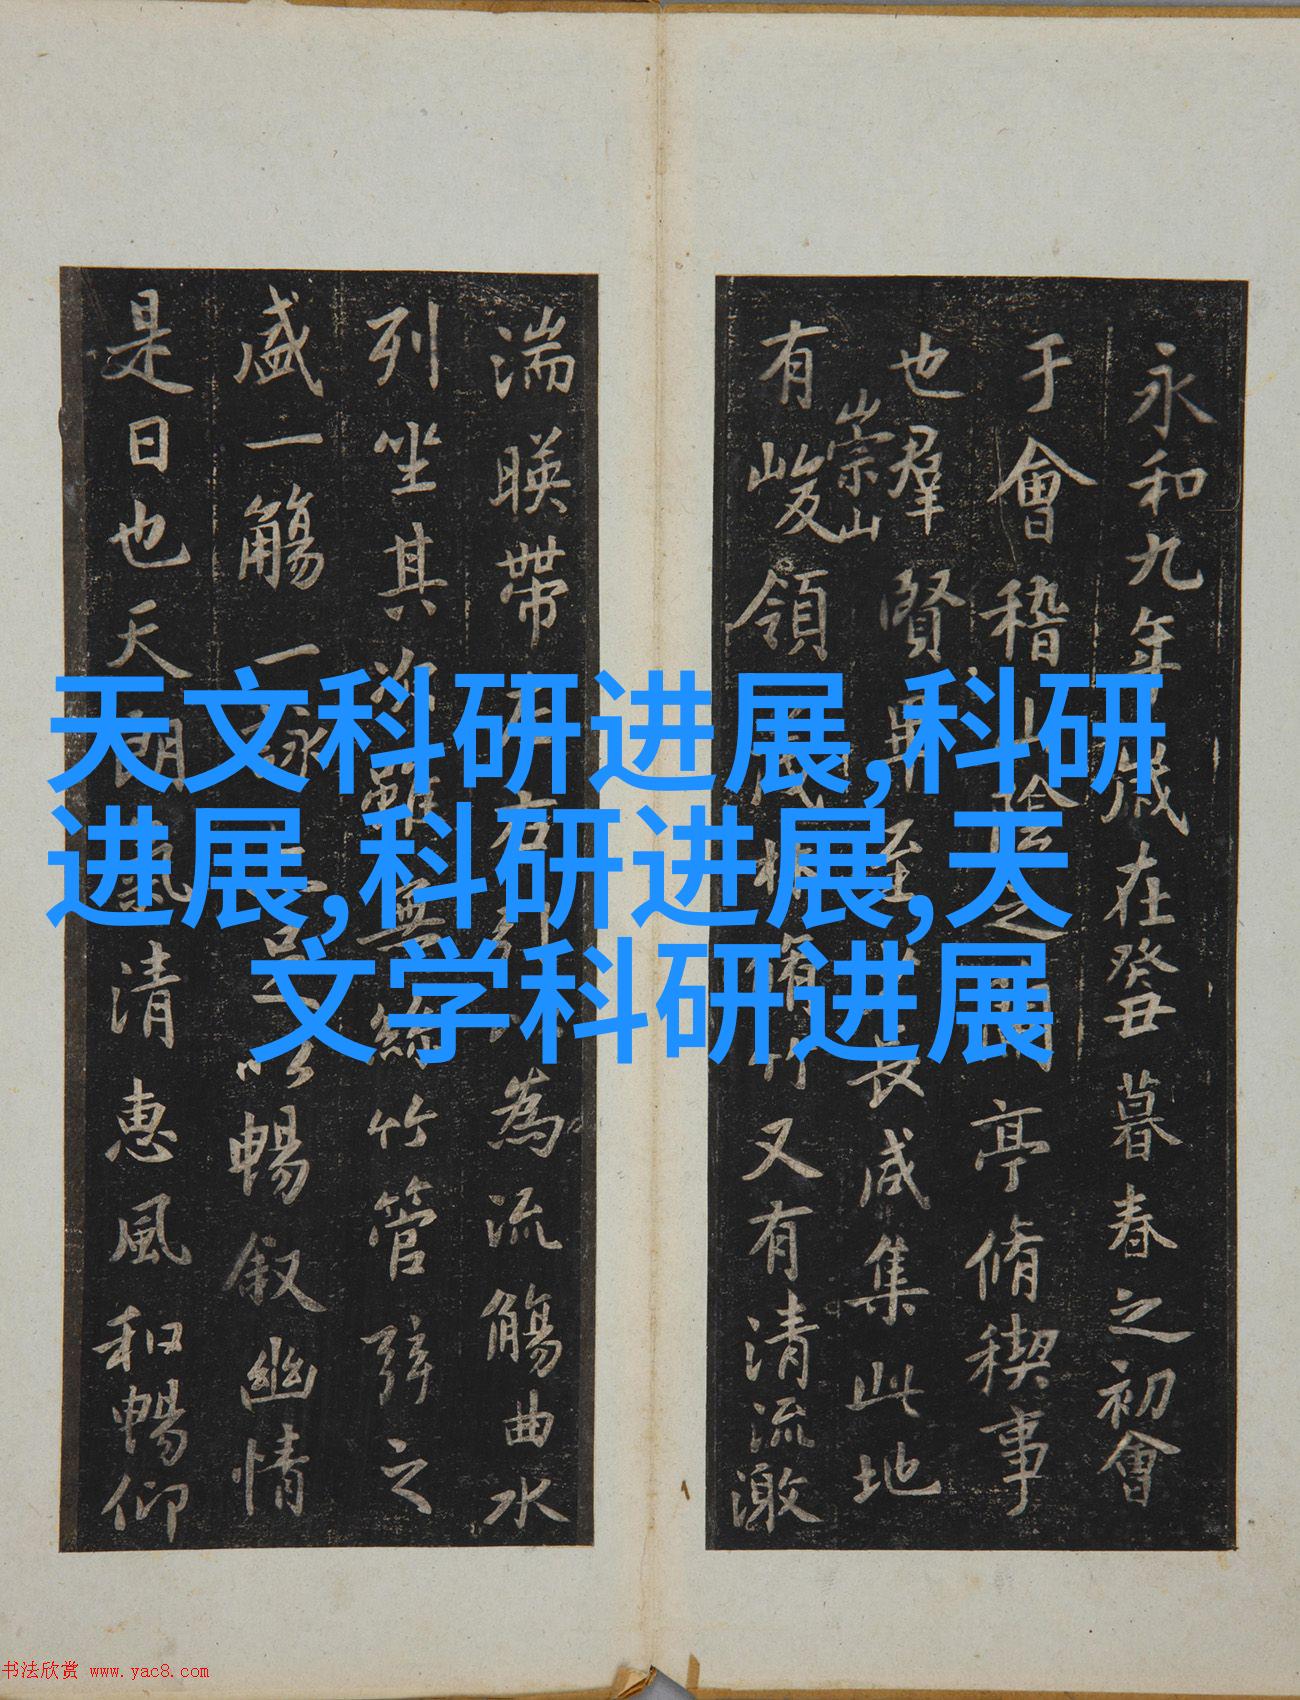 天文科研进展,科研
进展,科研进展,天
文学科研进展
永和九年歲在癸丑暮春之初會
于會稽山陰之蘭亭脩禊事
也羣賢畢至少長咸集此地
有崇山峻領茂林脩竹又有清流激
湍暎帶左右引以為流觴曲水
列坐其次雖無絲竹管弦之
盛一觴一詠亦足以暢叙幽情
是日也天朗氣清惠風和暢仰
书法欣赏 www.yac8.com